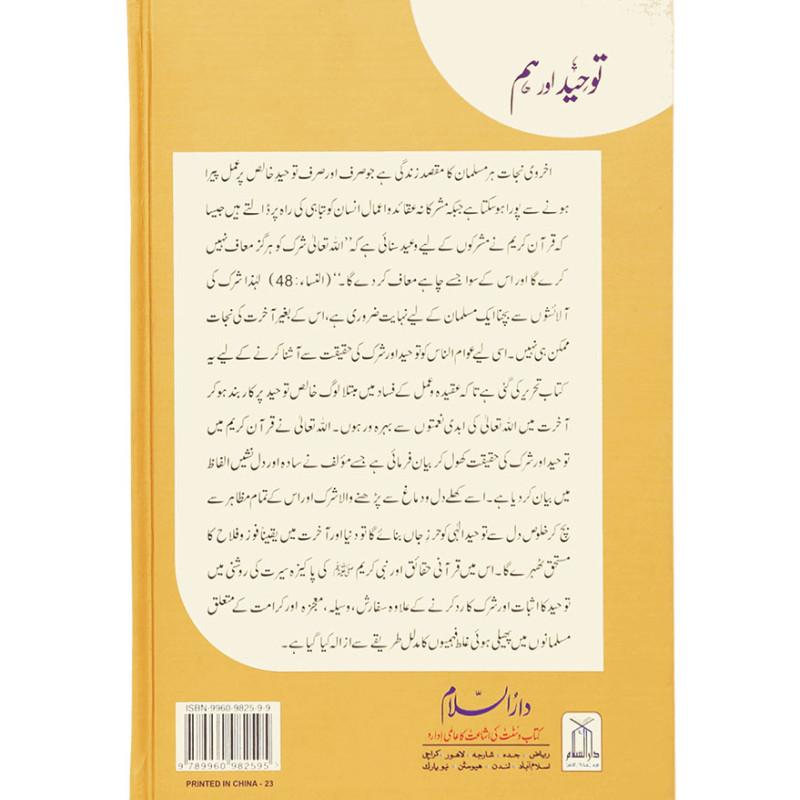 توحید اور ہم
اخروی نجات ہر مسلمان کا مقصد زندگی ہے جو صرف اور صرف توحید خالص پر عمل پیرا
ہونے سے پورا ہو سکتا ہے جبکہ مشرکانہ عقائد و اعمال انسان کو تباہی کی راہ پر ڈالتے ہیں جیسا
کہ قرآن کریم نے مشرکوں کے لیے وعید سنائی ہے کہ "اللہ تعالیٰ شرک کو ہرگز معاف نہیں
کرے گا اور اس کے سوا جسے چاہے معاف کر دے گا۔" (النساء: 48) لہٰذا شرک کی
آلائشوں سے بچنا ایک مسلمان کے لیے نہایت ضروری ہے، اس کے بغیر آخرت کی نجات
ممکن ہی نہیں۔ اسی لیے عوام الناس کو توحید اور شرک کی حقیقت سے آشنا کرنے کے لیے یہ
کتاب تحریر کی گئی ہے تاکہ عقیدہ و عمل کے فساد میں مبتلا لوگ خالص توحید پر کاربند ہو کر
آخرت میں اللہ تعالیٰ کی ابدی نعمتوں سے بہرہ ور ہوں۔ اللہ تعالیٰ نے قرآن کریم میں
توحید اور شرک کی حقیقت کھول کر بیان فرمائی ہے جسے مؤلف نے سادہ اور دل نشیں الفاظ
میں بیان کر دیا ہے۔ اسے کھلے دل و دماغ سے پڑھنے والا شرک اور اس کے تمام مظاہر سے
بچ کر خلوص دل سے توحید الٰہی کو حرز جاں بنائے گا تو دنیا اور آخرت میں یقیناً فوز و فلاح کا
مستحق ٹھہرے گا۔ اس میں قرآنی حقائق اور نبی کریم ﷺ کی پاکیزہ سیرت کی روشنی میں
توحید کا اثبات اور شرک کا رد کرنے کے علاوہ سفارش، وسیلہ، معجزہ اور کرامت کے متعلق
مسلمانوں میں پھیلی ہوئی غلط فہمیوں کا مدلل طریقے سے ازالہ کیا گیا ہے۔
دارالسلام
کتاب و سنت کی اشاعت کا عالمی ادارہ
ریاض • جدہ • شارجہ • لاہور • کراچی
اسلام آباد • لندن • ہیوسٹن • نیویارک
دارالسلام
ISBN-9960-9825-9-9
9 789960 982595
PRINTED IN CHINA - 23